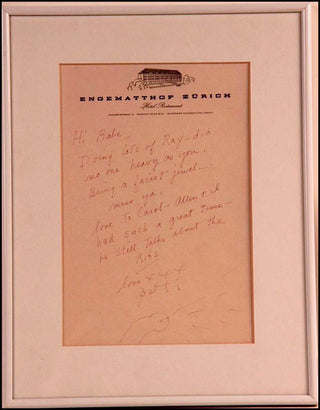 ENGEMATTHOF ZÜRICH
Hotel Restaurant
Hi Babe —
Doing lots of Ray-dio
no one heavy as you.
Being a facist jewel...
miss ya,
love to Carol - Allen & I
had such a great time -
he still talks about the
Ribs
love xxx
Betti